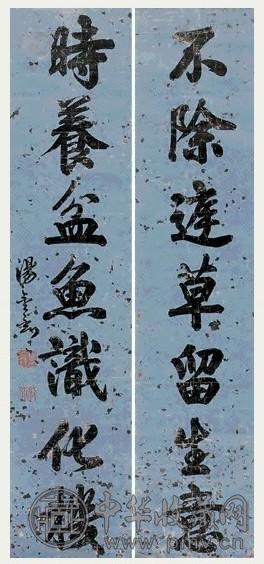 不除達草留生意
時養盆魚識化機
湯金釗
中华收藏网